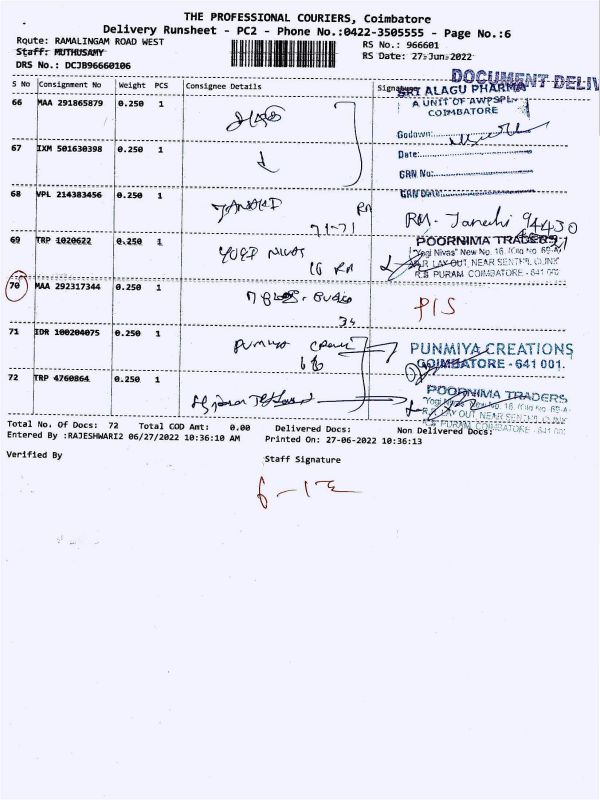 THE PROFESSIONAL COURIERS, Coimbatore
Delivery Runsheet - PC2 - Phone No.:0422-3505555 - Page No.:6
Route: RAMALINGAM ROAD WEST
RS No.: 966601
Staff: MUTHUSAMY
RS Date: 27-Jun-2022
DRS No.: DCJB96660106
DOCUMENT DELIV
S No Consignment No Weight PCS Consignee Details Signature
SRI ALAGU PHARMA
A UNIT OF AWPSPL
COIMBATORE
66 MAA 291865879 0.250 1
Godown:
67 IXM 501630398 0.250 1
Date:
GRN No:
GRN Date:
68 VPL 214383456 1
RM
71-71
RM. Janaki 94430
69 TRP 1020622 0.250 1
YOGI NIVAS
16 RM
POORNIMA TRADERS
"Yogi Nivas" New No. 16,
LAY OUT, NEAR SENTHIL CLINIC
R.S. PURAM, COIMBATORE - 641 002
70 MAA 292317344 0.250 1
34
P/S
71 IDR 100204075 0.250 1
PUNMIYA CREATIONS
COIMBATORE - 641 001.
72 TRP 4760864 0.250 1
POORNIMA TRADERS
"Yogi Nivas" New No. 16,
LAY OUT, NEAR SENTHIL CLINIC
R.S. PURAM, COIMBATORE - 641 002
Total No. Of Docs: 72 Total COD Amt: 0.00 Delivered Docs: Non Delivered Docs:
Entered By :RAJESHWARI2 06/27/2022 10:36:10 AM Printed On: 27-06-2022 10:36:13
Verified By
Staff Signature